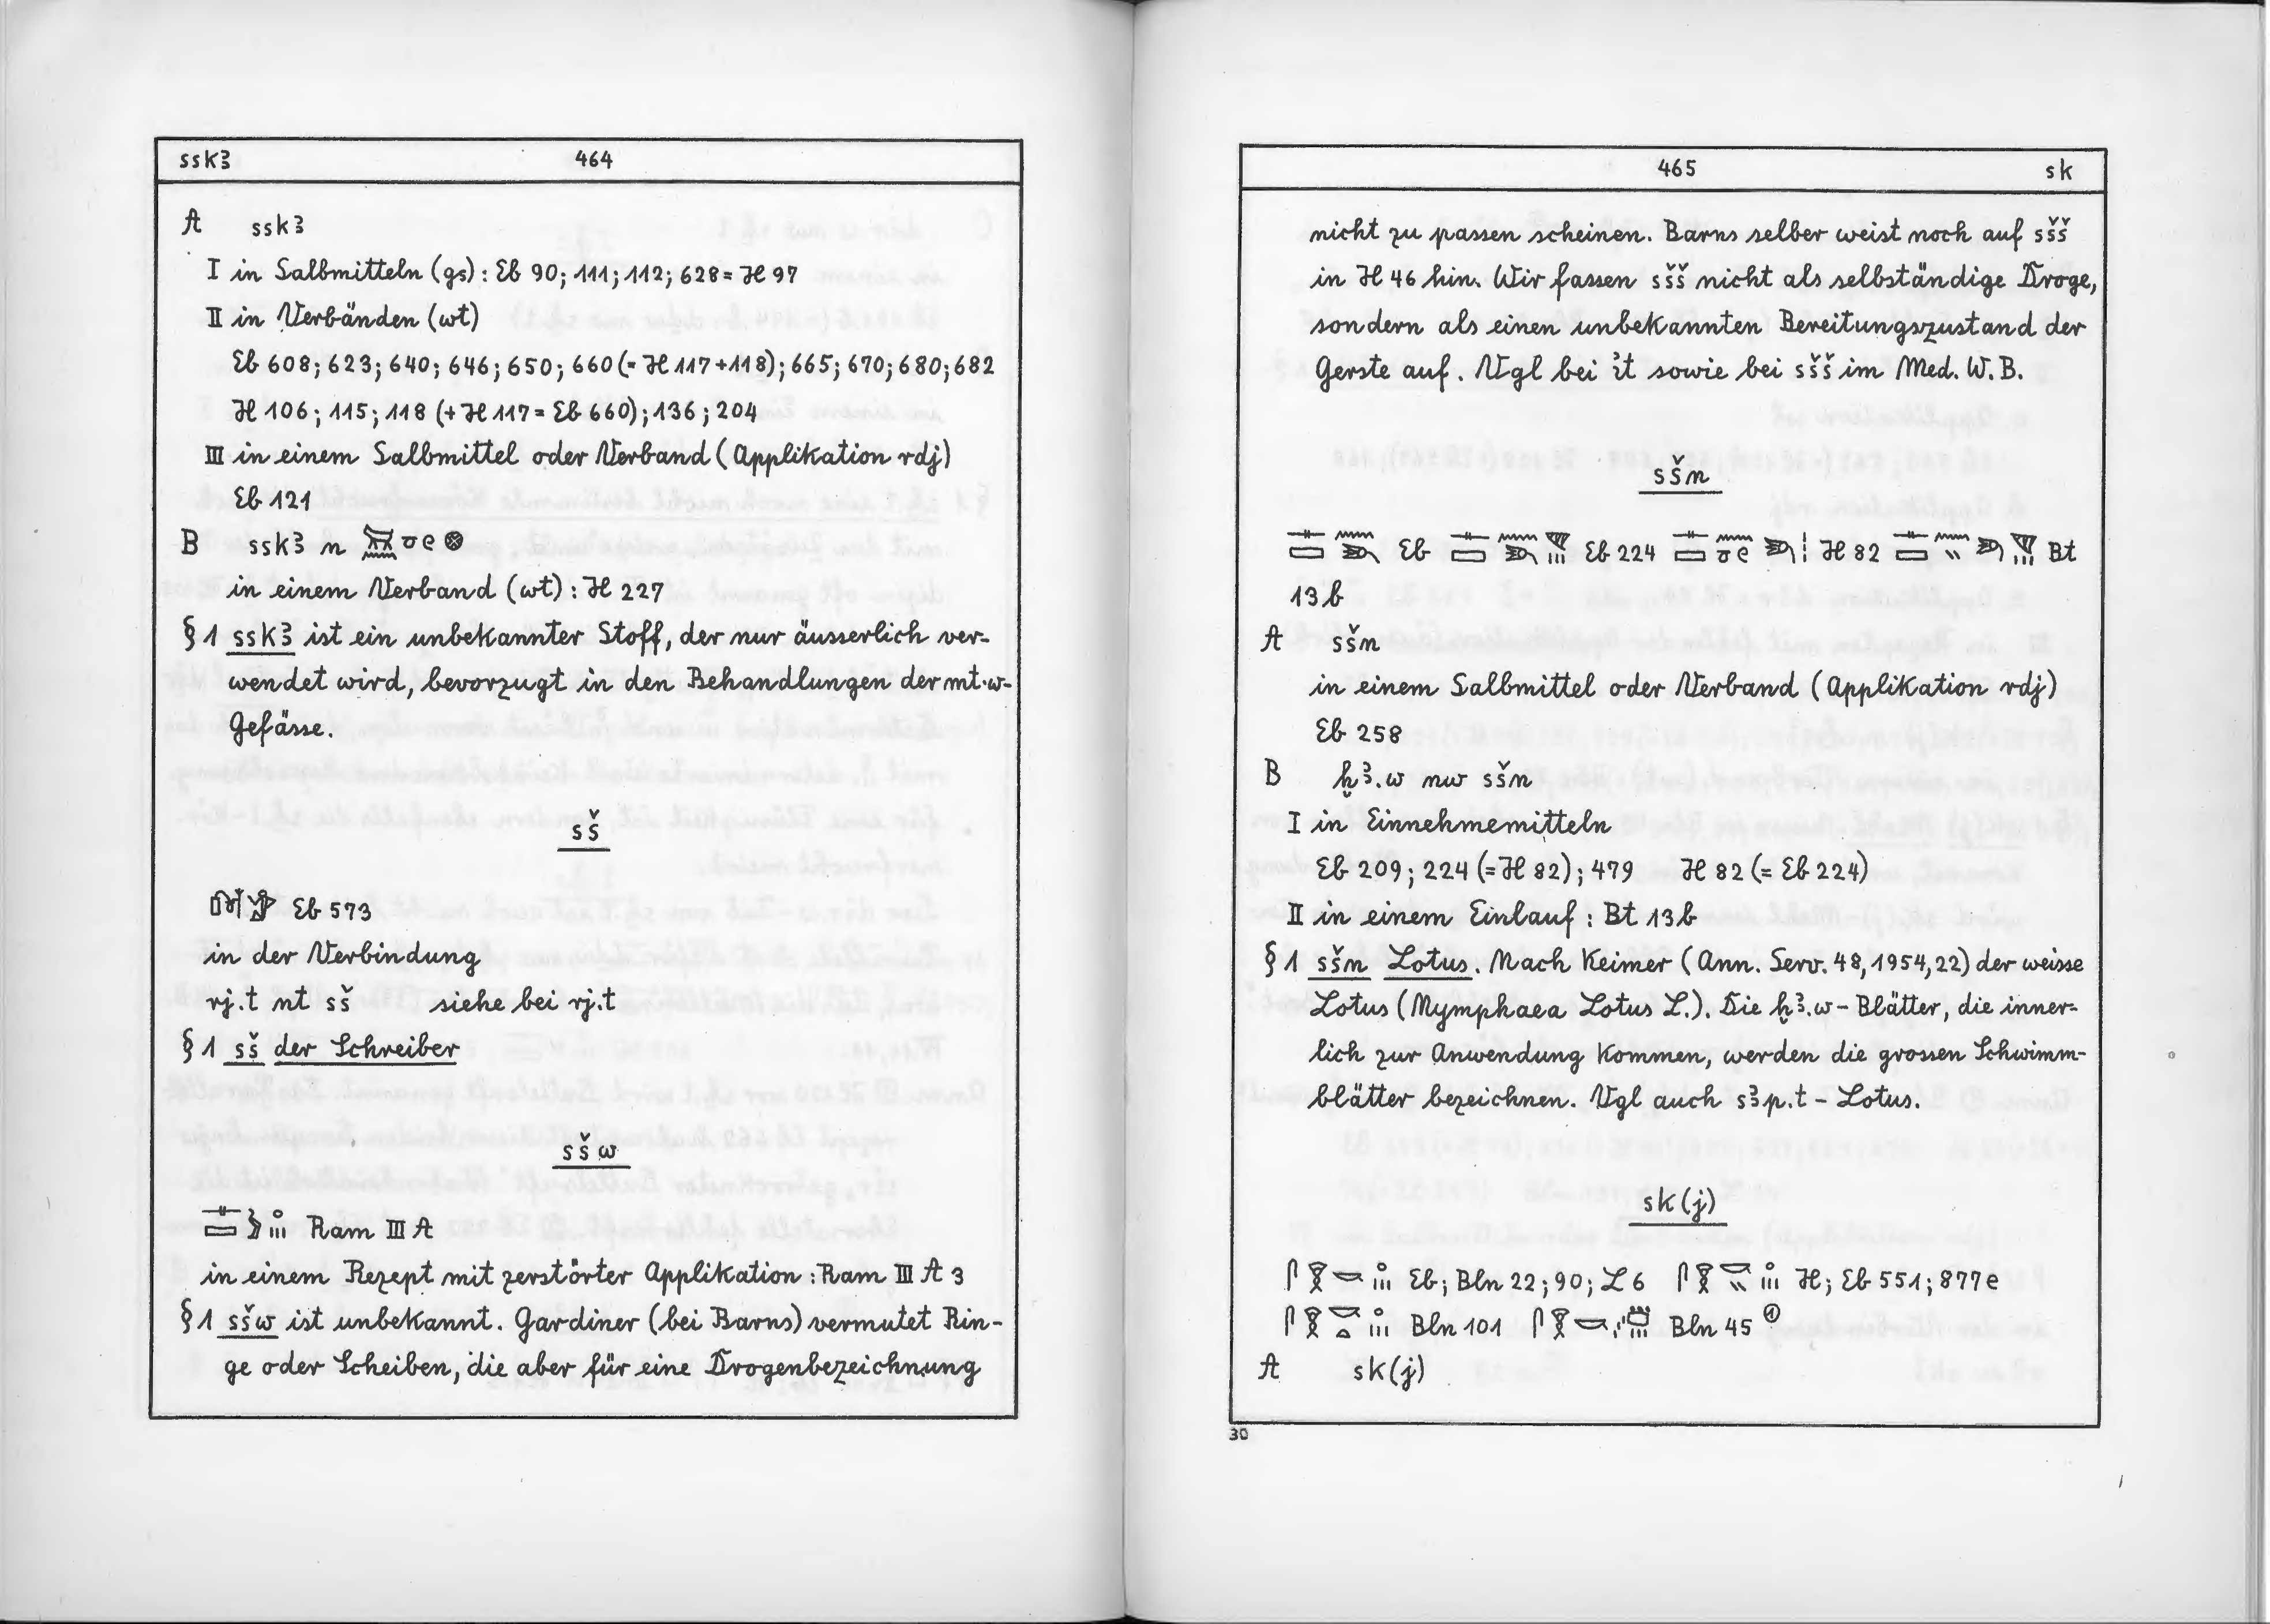 sskꜣ 464
A sskꜣ
I in Salbmitteln (gs): Eb 90; 111; 112; 628 = H 97
II in Verbänden (wt)
Eb 608; 623; 640; 646; 650; 660 (= H 117 + 118); 665; 670; 680; 682
H 106; 115; 118 (+ H 117 = Eb 660); 136; 204
III in einem Salbmittel oder Verband (Applikation rdj)
Eb 121
B sskꜣ n
in einem Verband (wt): H 227
§ 1 sskꜣ ist ein unbekannter Stoff, der nur äusserlich ver-
wendet wird, bevorzugt in den Behandlungen der mt.w-
Gefässe.
sš
Eb 573
in der Verbindung
rj.t nt sš siehe bei rj.t
§ 1 sš der Schreiber
sšw
Ram III A
in einem Rezept mit zerstörter Applikation: Ram III A 3
§ 1 sšw ist unbekannt. Gardiner (bei Barns) vermutet Rin-
ge oder Scheiben, die aber für eine Drogenbezeichnung
465 sk
nicht zu passen scheinen. Barns selber weist noch auf sšš
in H 46 hin. Wir fassen sšš nicht als selbständige Droge,
sondern als einen unbekannten Bereitungszustand der
Gerste auf. Vgl bei ı͗t sowie bei sšš im Med. W. B.
sšn
Eb Eb 224 H 82 Bt
13 b
A sšn
in einem Salbmittel oder Verband (Applikation rdj)
Eb 258
B ḫꜣ.w nw sšn
I in Einnehmemitteln
Eb 209; 224 (= H 82); 479 H 82 (= Eb 224)
II in einem Einlauf: Bt 13 b
§ 1 sšn Lotus. Nach Keimer (Ann. Serv. 48, 1954, 22) der weisse
Lotus (Nymphaea Lotus L.). Die ḫꜣ.w-Blätter, die inner-
lich zur Anwendung kommen, werden die grossen Schwimm-
blätter bezeichnen. Vgl auch sꜣp.t - Lotus.
sk(j)
Eb; Bln 22; 90; L 6 H; Eb 551; 877e
Bln 101 Bln 45 ①
A sk(j)
30